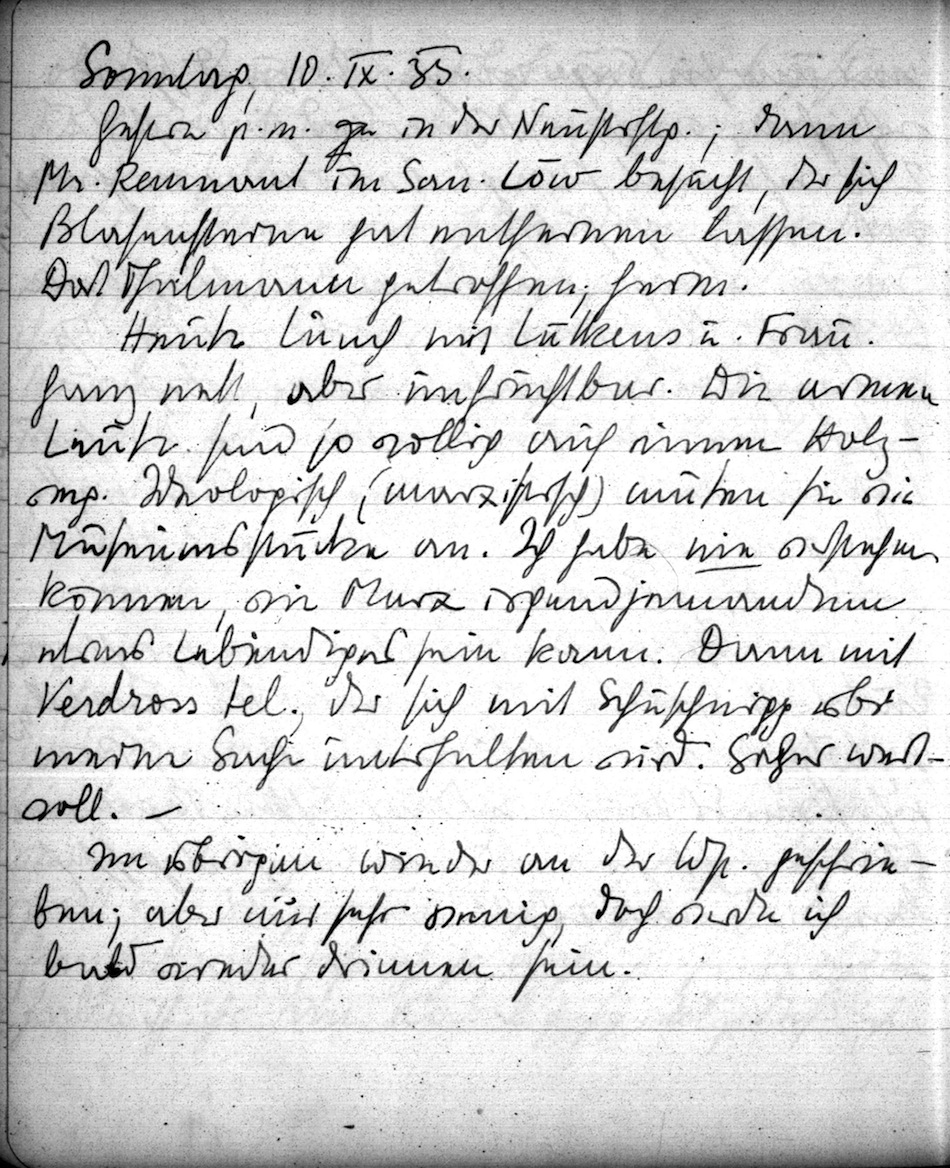 Sonntag, 10. IX. 35.
Gestern p.m. in der Neustiftg.; dann
Mr. Remnant im San. Löw besucht, der sich
Blasensteine hat entfernen lassen.
Dort Thielmann getroffen, gern.
Heute Lunch mit Lütkens u. Frau.
Ganz nett, aber unfruchtbar. Die armen
Leute sind so völlig auf einem Holz-
weg. Ideologisch (marxistisch) muten sie wie
Museumsstücke an. Ich habe nie verstehen
können, wie Marx irgendjemandem
etwas Lebendiges sein kann. Dann mit
Verdross tel., der sich mit Schuschnigg über
meine Sache unterhalten wird. Sicher wert-
voll. –
Im übrigen wieder an der geschrie-
ben; aber nur sehr wenig, doch werde ich
bald wieder drinnen sein.